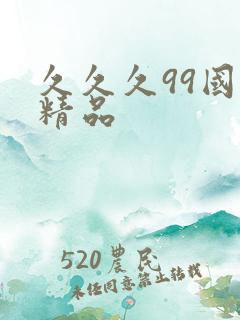 久久久99國
精品
520農民
未经同意禁止转载